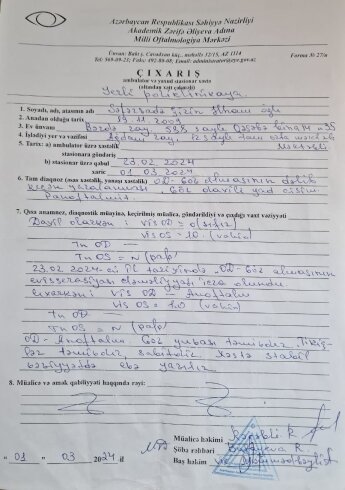 Azərbaycan Respublikası Səhiyyə Nazirliyi
Akademik Zərifə Əliyeva Adına
Milli Oftalmologiya Mərkəzi
Ünvan: Bakı ş., Cavadxan küç., məhəllə 32/15, AZ 1114
Tel: 569-09-23; Faks: 492-89-68; Email: administrator@eye.gov.az
Forma № 27/a
ÇIXARIŞ
ambulator və yaxud stasionar xəstə
(altından xətt çəkməli)
Yerli poliklinikaya
1. Soyadı, adı, atasının adı
İlham oğlu
2. Anadan olduğu tarix 19 11 2009
3. Ev ünvanı Bərdə ray. 598 saylı Qəsəbə bina 14
4. İşlədiyi yer və vəzifəsi Ağdam ray. 123 saylı tam orta məktəb
5. Tarix: a) ambulator üzrə xəstəlik
stasionara göndəriş
b) stasionar üzrə qəbul 23.02.2024
xaric 01 03 2024
6. Tam diaqnoz (əsas xəstəlik, yanaşı xəstəlik) OD- Göz almasının dəlik
yaralanması. Göz daxili yad cisim
Panoftalmit.
7. Qısa anamnez, diaqnostik müayinə, keçirilmiş müalicə, göndərildiyi və çıxdığı vaxt vəziyyəti
Daxil olarkən: Vis OD = 0 (sıfır)
Vis OS = 1.0
Tn OD —
Tn OS = N (palp)
23.02.2024-cü il tarixində OD- Göz almasının
evisserasiyası əməliyyatı icra olundu.
Çıxarkən: Vis OD = Anoftalm
Vis OS = 1.0
Tn OD —
Tn OS = N (palp)
OD- Anoftalm. Göz yuvası təmizdir.
təmizdir, Xəstə stabil
vəziyyətdə evə yazılır.
8. Müalicə və əmək qabiliyyəti haqqında rəyi:
Müalicə həkimi
Şöbə rəhbəri
Baş həkim
"01" 03 2024 il